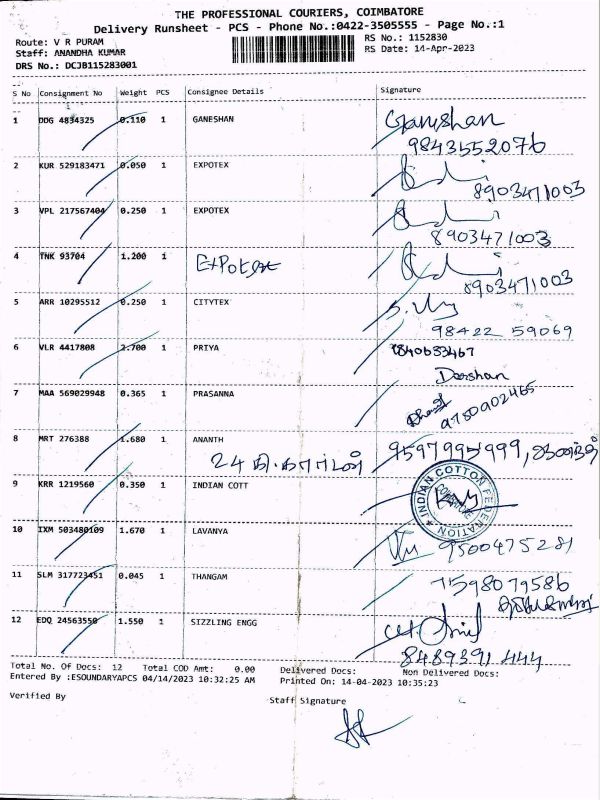 THE PROFESSIONAL COURIERS, COIMBATORE
Delivery Runsheet - PCS - Phone No.:0422-3505555 - Page No.:1
Route: V R PURAM
RS No.: 1152830
Staff: ANANDHA KUMAR
RS Date: 14-Apr-2023
DRS No.: DCJB115283001
S No Consignment No Weight PCS Consignee Details Signature
1 DDG 4834325 0.110 1 GANESHAN Ganeshan
9843552076
2 KUR 529183471 0.050 1 EXPOTEX
8903471003
3 VPL 217567404 0.250 1 EXPOTEX
8903471003
4 TNK 93704 1.200 1
8903471003
5 ARR 10295512 0.250 1 CITYTEX
98422 59069
6 VLR 4417808 2.700 1 PRIYA
Darshan
7 MAA 569029948 0.365 1 PRASANNA
8 MRT 276388 1.680 1 ANANTH
24
9 KRR 1219560 0.350 1 INDIAN COTT
INDIAN COTTON FEDERATION
COIMBATORE
10 IXM 503480109 1.670 1 LAVANYA
9500475281
11 SLM 317723451 0.045 1 THANGAM 7598079586
12 EDQ 24563550 1.550 1 SIZZLING ENGG
8489391444
Total No. Of Docs: 12 Total COD Amt: 0.00 Delivered Docs: Non Delivered Docs:
Entered By :ESOUNDARYAPCS 04/14/2023 10:32:25 AM Printed On: 14-04-2023 10:35:23
Verified By Staff Signature